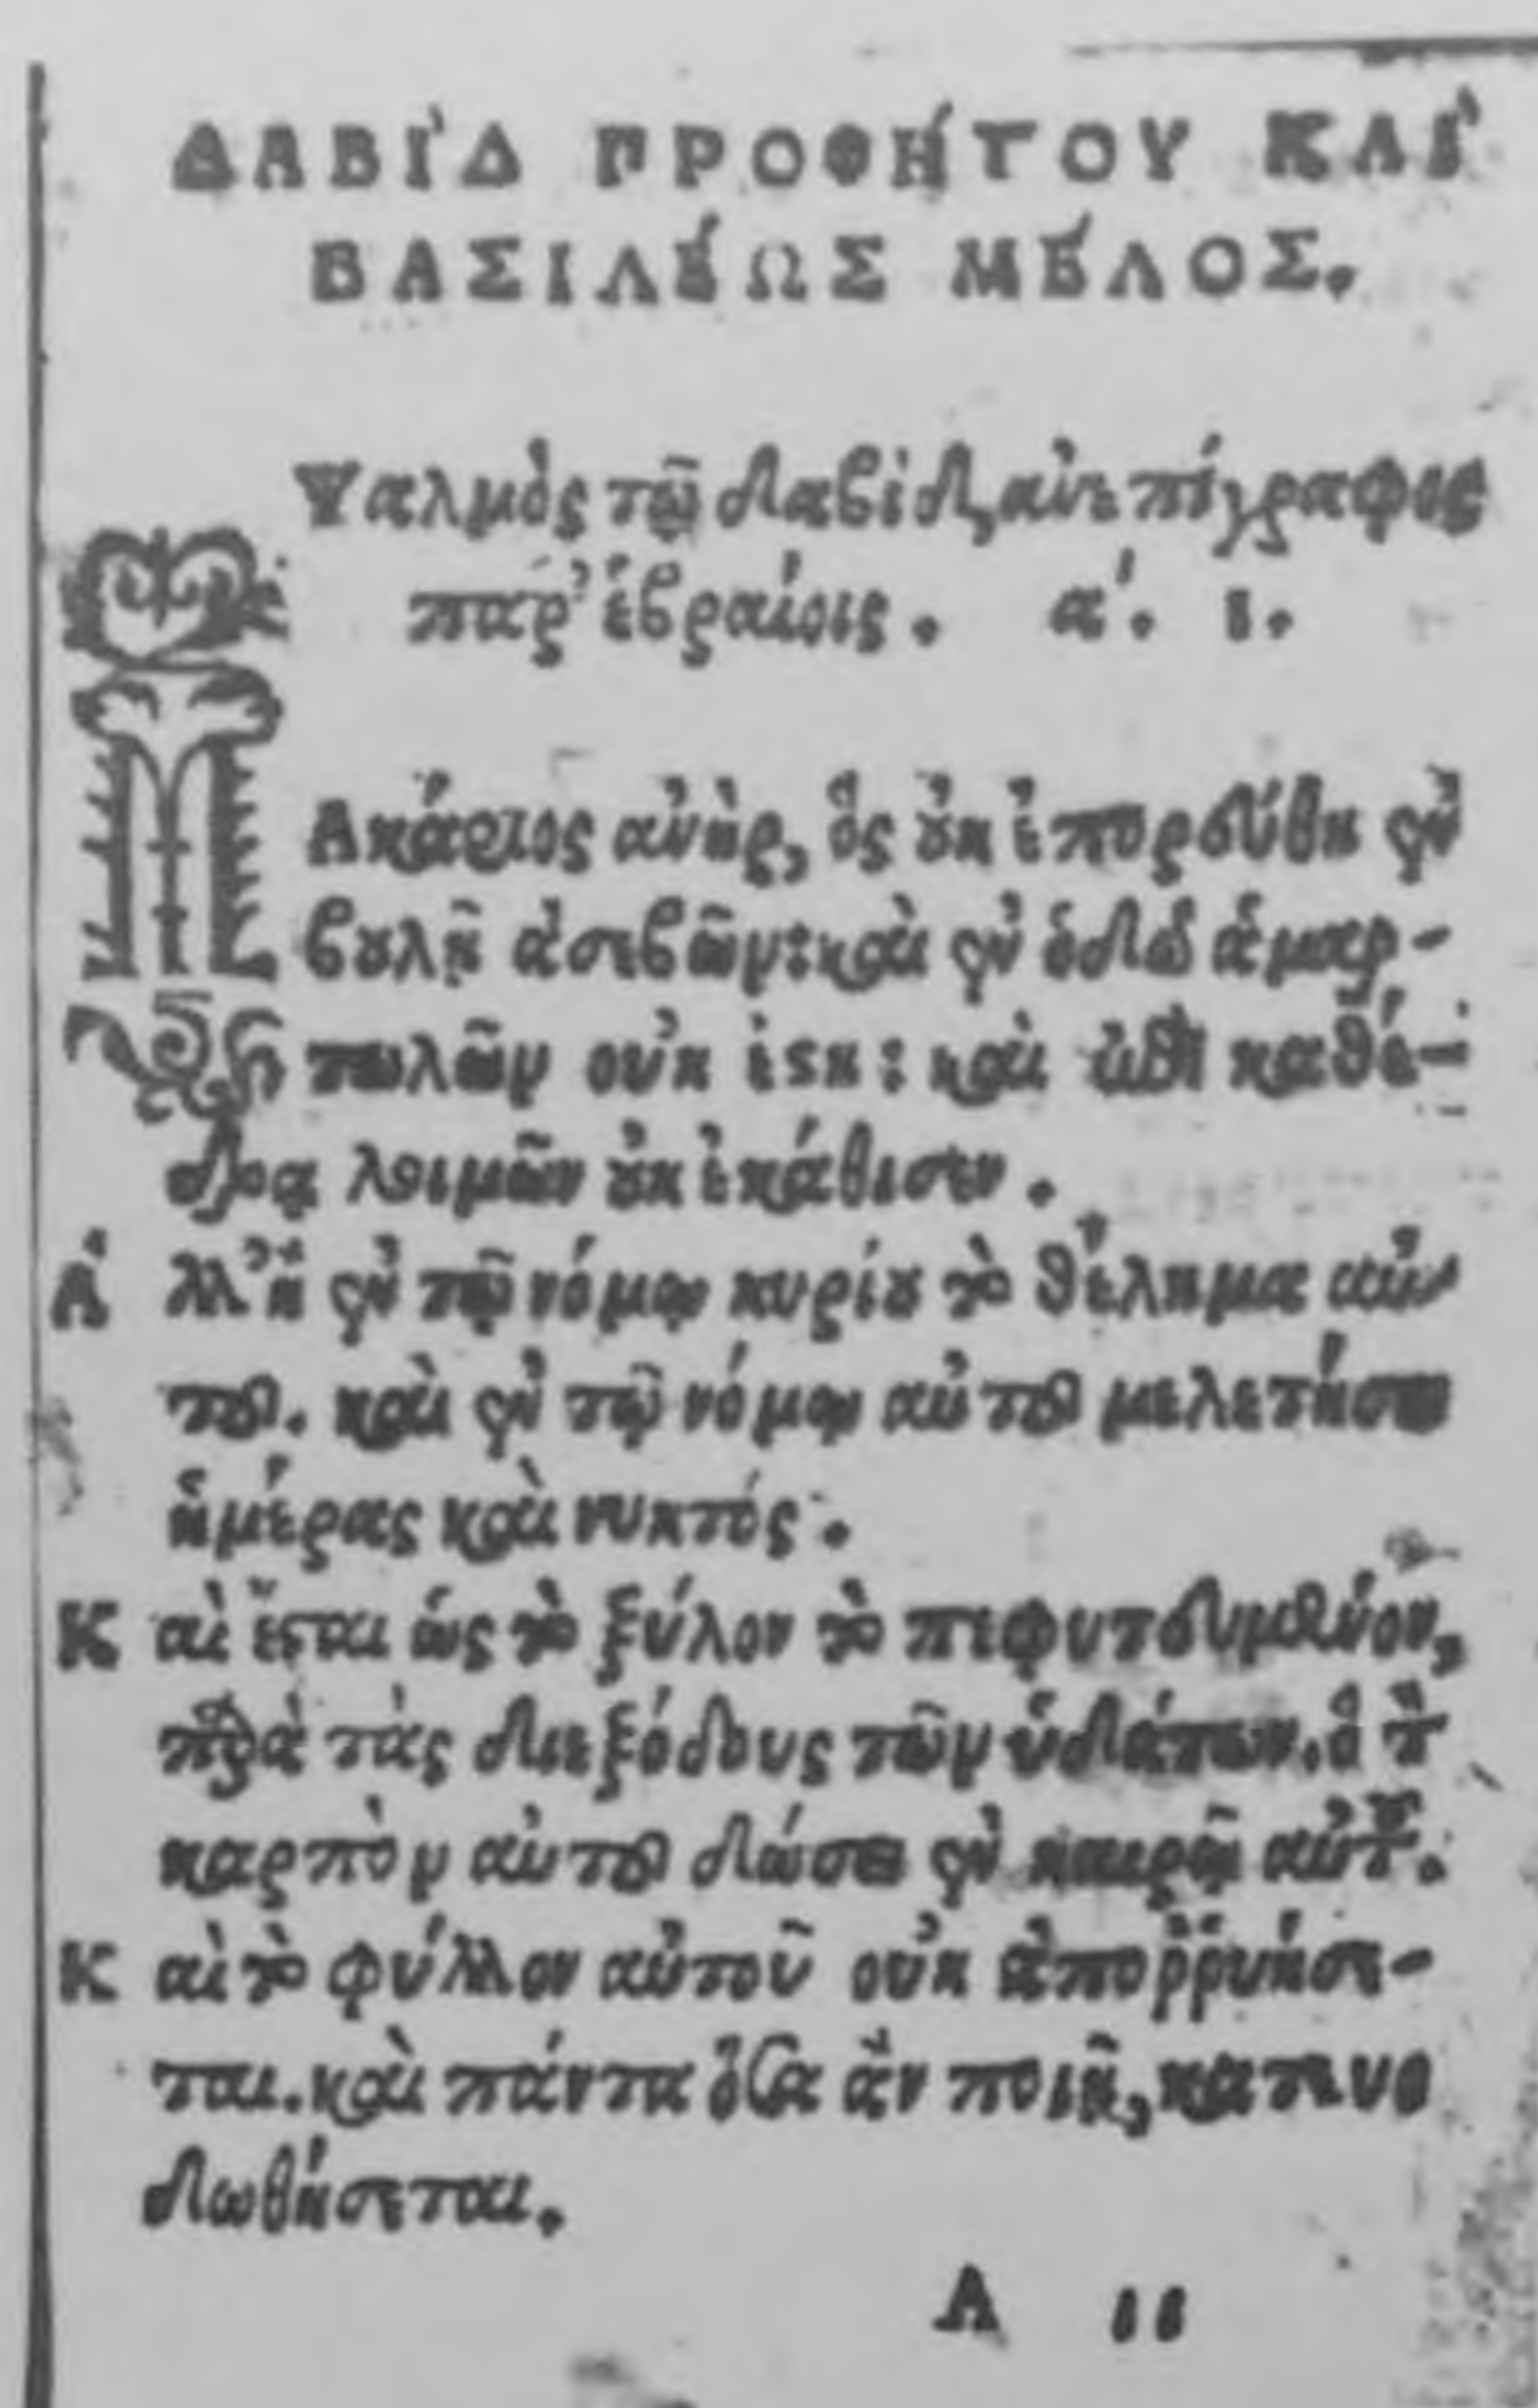 ΔΑΒΙ᾽Δ ΠΡΟΦΗ´ΤΟΥ ΚΑΙ`
ΒΑΣΙΛΕ´ΩΣ ΜΕ´ΛΟΣ.
Ψαλμὸς τῷ δαβὶδ, ἀνεπίγραφος
παρ᾽ ἑβραίοις. α΄. 1.
Μ
Ακάριος ἀνὴρ, ὃς οὐκ ἐπορεύθη ἐν
βουλῇ ἀσεβῶν: καὶ ἐν ὁδῷ ἁμαρ-
τωλῶν οὐκ ἔστη: καὶ ἐπὶ καθέ-
δρᾳ λοιμῶν οὐκ ἐκάθισεν.
Α᾽λλ᾽ ἢ ἐν τῷ νόμῳ κυρίου τὸ θέλημα αὐ
τοῦ. καὶ ἐν τῷ νόμῳ αὐτοῦ μελετήσει
ἡμέρας καὶ νυκτός.
Καὶ ἔσται ὡς τὸ ξύλον τὸ πεφυτευμένον,
παρὰ τὰς διεξόδους τῶν ὑδάτων. ὃ τὸν
καρπὸν αὐτοῦ δώσει ἐν καιρῷ αὐτοῦ.
Καὶ τὸ φύλλον αὐτοῦ οὐκ ἀποῤῥυήσε-
ται. καὶ πάντα ὅσα ἂν ποιῇ, κατευο
δωθήσεται.
A ii